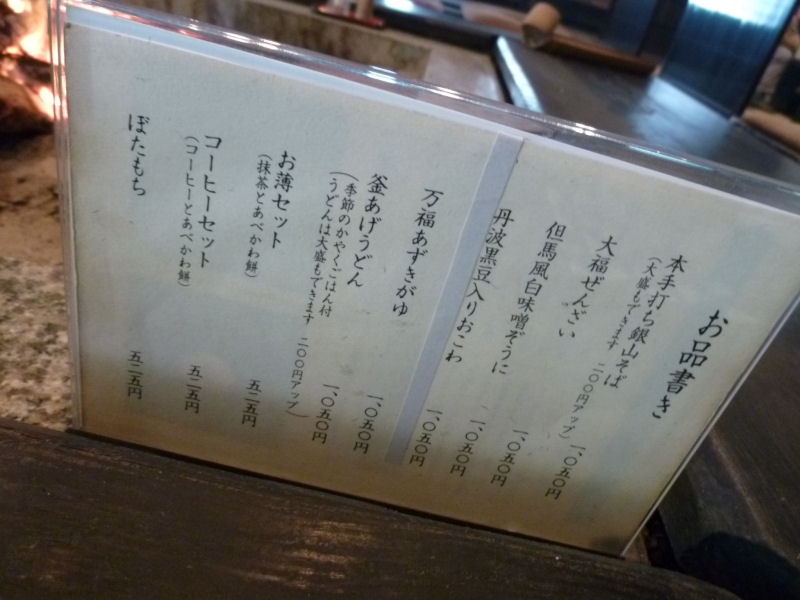 お品書き
本手打ち銀山そば 一、〇五〇円
(大盛もできます 二〇〇円アップ)
大福ぜんざい 一、〇五〇円
但馬風白味噌ぞうに 一、〇五〇円
丹波黒豆入りおこわ 一、〇五〇円
万福あずきがゆ 一、〇五〇円
釜あげうどん 一、〇五〇円
(季節のかやくごはん付
うどんは大盛もできます 二〇〇円アップ)
お薄セット 五二五円
(抹茶とあべかわ餅)
コーヒーセット 五二五円
(コーヒーとあべかわ餅)
ぼたもち 五二五円